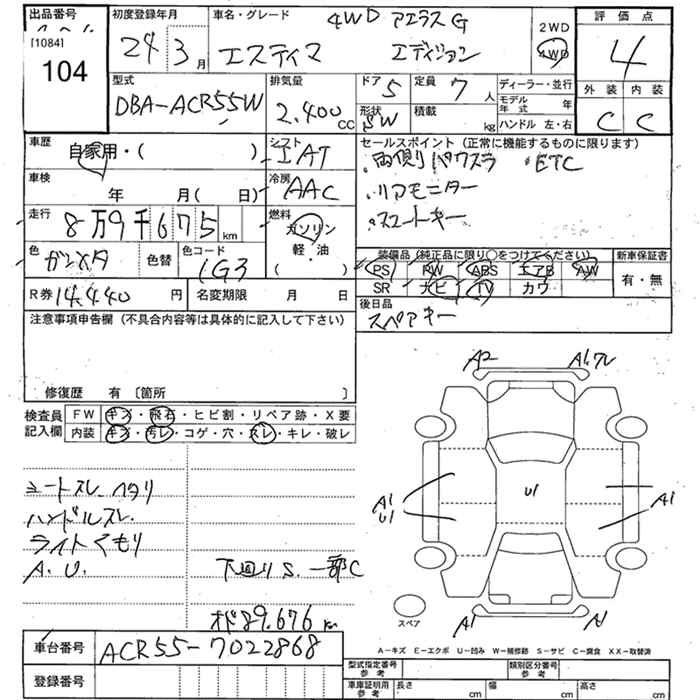 出品番号 初度登録年月 車名・グレード 4WD アエラス G 2WD 評価点
[1084] 104 24 3月 エスティマ エディション 4WD 4
型式 排気量 ドア 5 定員 7人 ディーラー・並行 外装 内装
DBA-ACR55W 2.400cc 形状 SW 積載 kg モデル年式 年 ハンドル 左・右 C C
車歴 自家用・( ) シフト IAT セールスポイント (正常に機能するものに限ります)
両側パワスラ ・ETC
車検 年 月( 日) 冷房 AAC ・リアモニター
走行 8万9千675km 燃料 ガソリン ・スマートキー
軽・油
( )
色 ガンメタ 色替 色コード 1G3 装備品(純正品に限り○をつけてください) 新車保証書
PS PW ABS エアB AW 有・無
SR ナビ TV カワ
R券 14,440円 名変期限 月 日 後日品
スペアキー
注意事項申告欄(不具合内容等は具体的に記入して下さい)
修復歴 有 〔箇所 〕
検査員記入欄 FW キズ・飛石・ヒビ割・リペア跡・X要
内装 キズ・汚レ・コゲ・穴・スレ・キレ・破レ
A2 A1
シートスレ ヘタリ
ハンドルスレ
ライトくもり
A.U. 下廻りS. 一部C
オド89.676km
A1 U1 U1 A1
スペア A1 A1
車台番号 ACR55-7022868
登録番号
A-キズ E-エクボ U-凹み W-補修跡 S-サビ C-腐食 XX-取替済
型式指定番号 参考 類別区分番号 参考
車庫証明用 参考 長さ cm 幅 cm 高さ cm